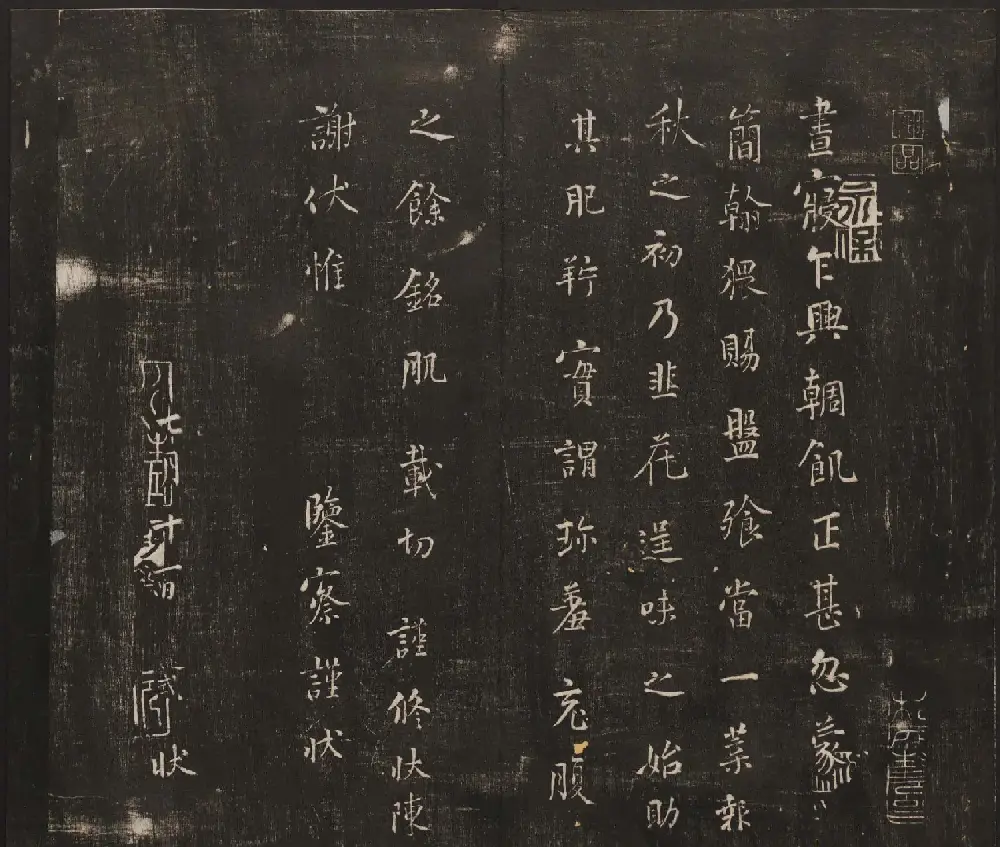 晝寢乍興輖飢正甚忽蒙
簡翰猥賜盤飧當一葉報
秋之初乃韭花逞味之始助
其肥羜實謂珎羞充腹
之餘銘肌載切謹修狀陳
謝伏惟鑒察謹狀
狀